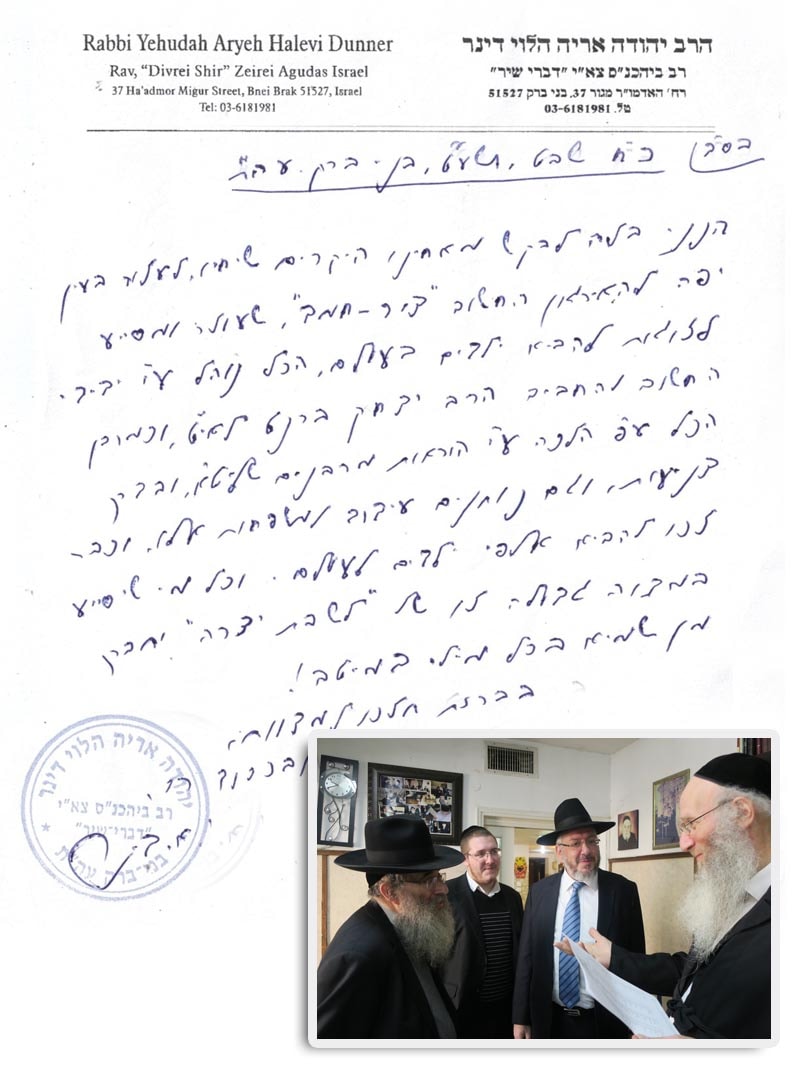 Rabbi Yehudah Aryeh Halevi Dunner
Rav, "Divrei Shir" Zeirei Agudas Israel
37 Ha'admor Migur Street, Bnei Brak 51527, Israel
Tel: 03-6181981
הרב יהודה אריה הלוי דינר
רב ביהכנ"ס צא"י "דברי שיר"
רח' האדמו"ר מגור 37, בני ברק 51527
טל. 03-6181981
כ"ח שבט, תשע"ט, בני ברק
הנני בזה לבקש מאחינו היקרים שיחיו, לעזור בעין
יפה להאירגון החשוב "ציר-חמב", שעוזר ומסייע
לזוגות להביא ילדים בעולם, הכל נוהל ע"י ידידי
החשוב והחביב הרב יצחק ברנט שליט"א, וכמובן
הכל עפ"י הלכה ע"י הוראות מרבנים שליט"א, ובדק
בניעות, וגם נותנים עידוד ומשפחות אלו, וכבר
זכו להביא אלפי ילדים לעולם. וכל מי שיסייע
במצוה גדולה זו של "לשבת יצרה" יתברך
מן שמיא בכל מילי דמיטב!
בברכת חזנו למצוות,
יהודה אריה הלוי דינר
רב ביהכנ"ס צא"י
"דברי שיר"